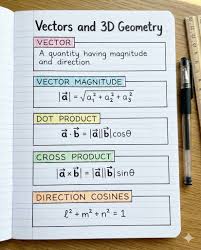 Vectors and 3D Geometry
VECTOR
A quantity having magnitude
and direction.
VECTOR MAGNITUDE
|a⃗| = √a₁² + a₂² + a₃²
DOT PRODUCT
a⃗ · b⃗ = |a⃗||b⃗|cosθ
CROSS PRODUCT
|a⃗ × b⃗| = |a⃗||b⃗|sinθ
DIRECTION COSINES
ℓ² + m² + n² = 1